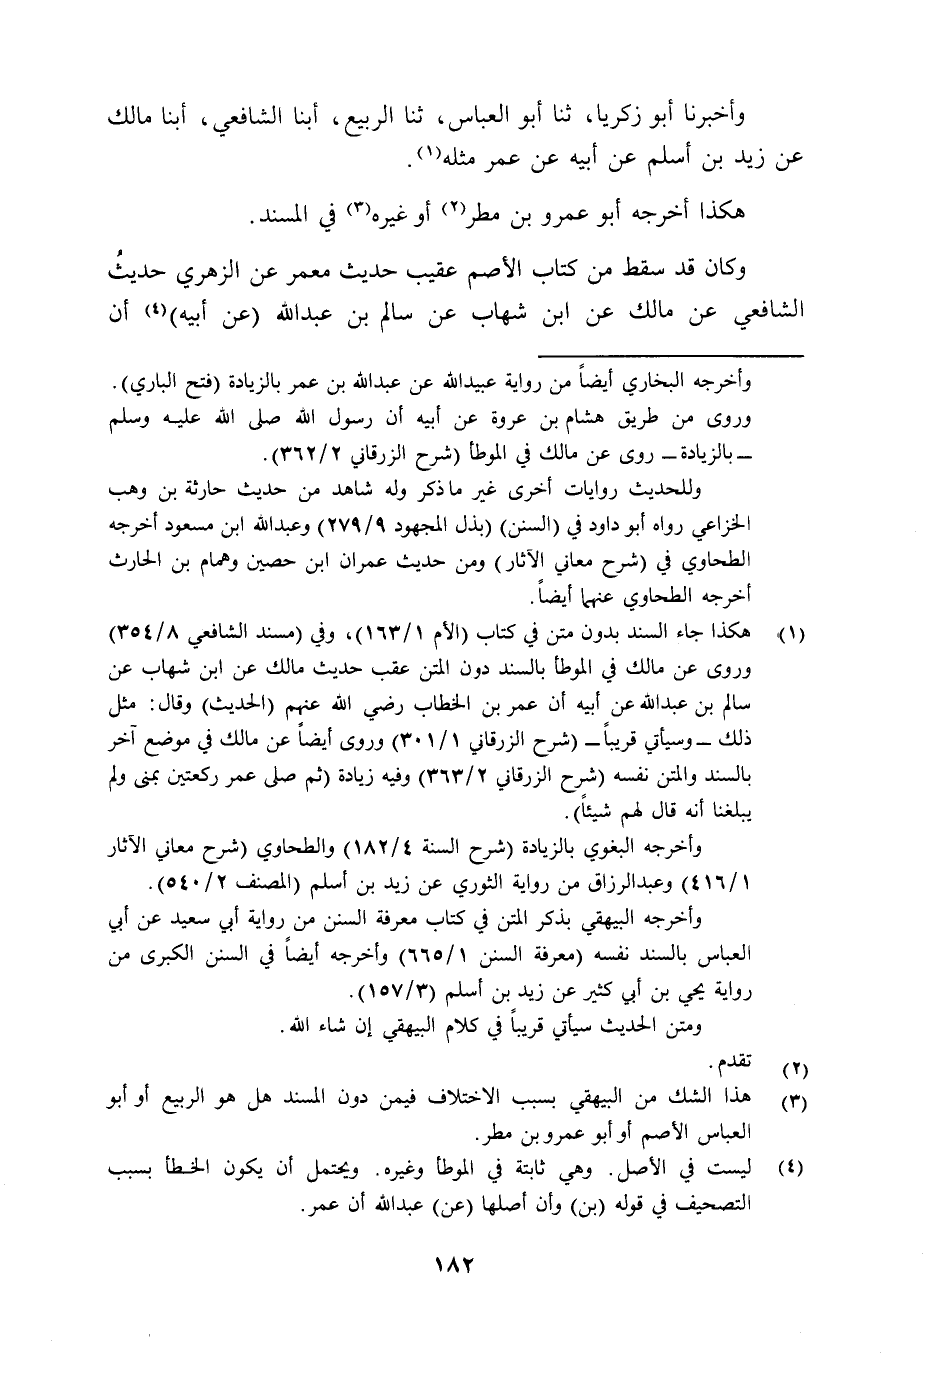 وأخبرنا أبو زكريا، ثنا أبو العباس، ثنا الربيع، أبنا الشافعي، أبنا مالك
عن زيد بن أسلم عن أبيه عن عمر مثله(١).
هكذا أخرجه أبو عمرو بن مطر(٢) أو غيره(٣) في المسند.
وكان قد سقط من كتاب الأصم عقيب حديث معمر عن الزهري حديثُ
الشافعي عن مالك عن ابن شهاب عن سالم بن عبدالله (عن أبيه)(٤) أن
وأخرجه البخاري أيضاً من رواية عبيدالله عن عبدالله بن عمر بالزيادة (فتح الباري).
وروى من طريق هشام بن عروة عن أبيه أن رسول الله صلى الله عليه وسلم
ـ بالزيادة ـ روى عن مالك في الموطأ (شرح الزرقاني ٣٦٢/٢).
وللحديث روايات أخرى غير ما ذكر وله شاهد من حديث حارثة بن وهب
الخزاعي رواه أبو داود في (السنن) (بذل المجهود ٢٧٩/٩) وعبدالله ابن مسعود أخرجه
الطحاوي في (شرح معاني الآثار) ومن حديث عمران ابن حصين وهمام بن الحارث
أخرجه الطحاوي عنهما أيضاً.
(١) هكذا جاء السند بدون متن في كتاب (الأم ١٦٣/١)، وفي (مسند الشافعي ٣٥٤/٨)
وروى عن مالك في الموطأ بالسند دون المتن عقب حديث مالك عن ابن شهاب عن
سالم بن عبدالله عن أبيه أن عمر بن الخطاب رضي الله عنهم (الحديث) وقال: مثل
ذلك ـ وسيأتي قريباً ـ (شرح الزرقاني ٣٠١/١) وروى أيضاً عن مالك في موضع آخر
بالسند والمتن نفسه (شرح الزرقاني ٣٦٣/٢) وفيه زيادة (ثم صلى عمر ركعتين بمنى ولم
يبلغنا أنه قال لهم شيئاً).
وأخرجه البغوي بالزيادة (شرح السنة ١٨٢/٤) والطحاوي (شرح معاني الآثار
٤١٦/١) وعبدالرزاق من رواية الثوري عن زيد بن أسلم (المصنف ٥٤٠/٢).
وأخرجه البيهقي بذكر المتن في كتاب معرفة السنن من رواية أبي سعيد عن أبي
العباس بالسند نفسه (معرفة السنن ٦٦٥/١) وأخرجه أيضاً في السنن الكبرى من
رواية يحي بن أبي كثير عن زيد بن أسلم (١٥٧/٣).
ومتن الحديث سيأتي قريباً في كلام البيهقي إن شاء الله.
(٢) تقدم.
(٣) هذا الشك من البيهقي بسبب الاختلاف فيمن دون المسند هل هو الربيع أو أبو
العباس الأصم أو أبو عمرو بن مطر.
(٤) ليست في الأصل. وهي ثابتة في الموطأ وغيره. ويحتمل أن يكون الخطأ بسبب
التصحيف في قوله (بن) وأن أصلها (عن) عبدالله أن عمر.
١٨٢